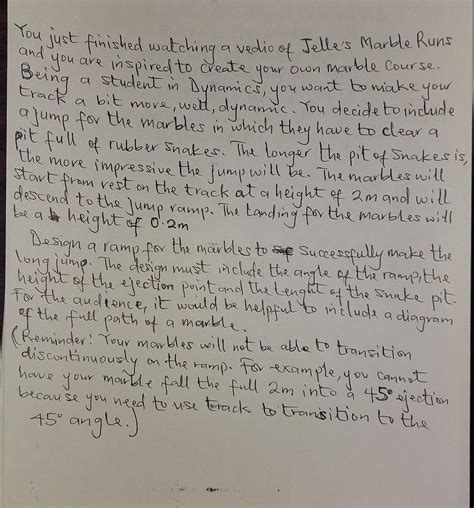 You just finished watching a vedio of Jelle's Marble Runs
and you are inspired to create your own marble course.
Being a student in Dynamics, you want to make your
track a bit more, well, dynamic. You decide to include
a jump for the marbles in which they have to clear a
pit full of rubber snakes. The longer the pit of snakes is,
the more impressive the jump will be. The marbles will
start from rest on the track at a height of 2m and will
descend to the jump ramp. The landing for the marbles will
be a height of 0.2m
Design a ramp for the marbles to successfully make the
long jump. The design must include the angle of the ramp, the
height of the ejection point and the lenght of the snake pit.
For the audience, it would be helpful to include a diagram
of the full path of a marble.
(Reminder! Your marbles will not be able to transition
discontinuously on the ramp. For example, you cannot
have your marble fall the full 2m into a 45° ejection
because you need to use track to transition to the
45° angle.)